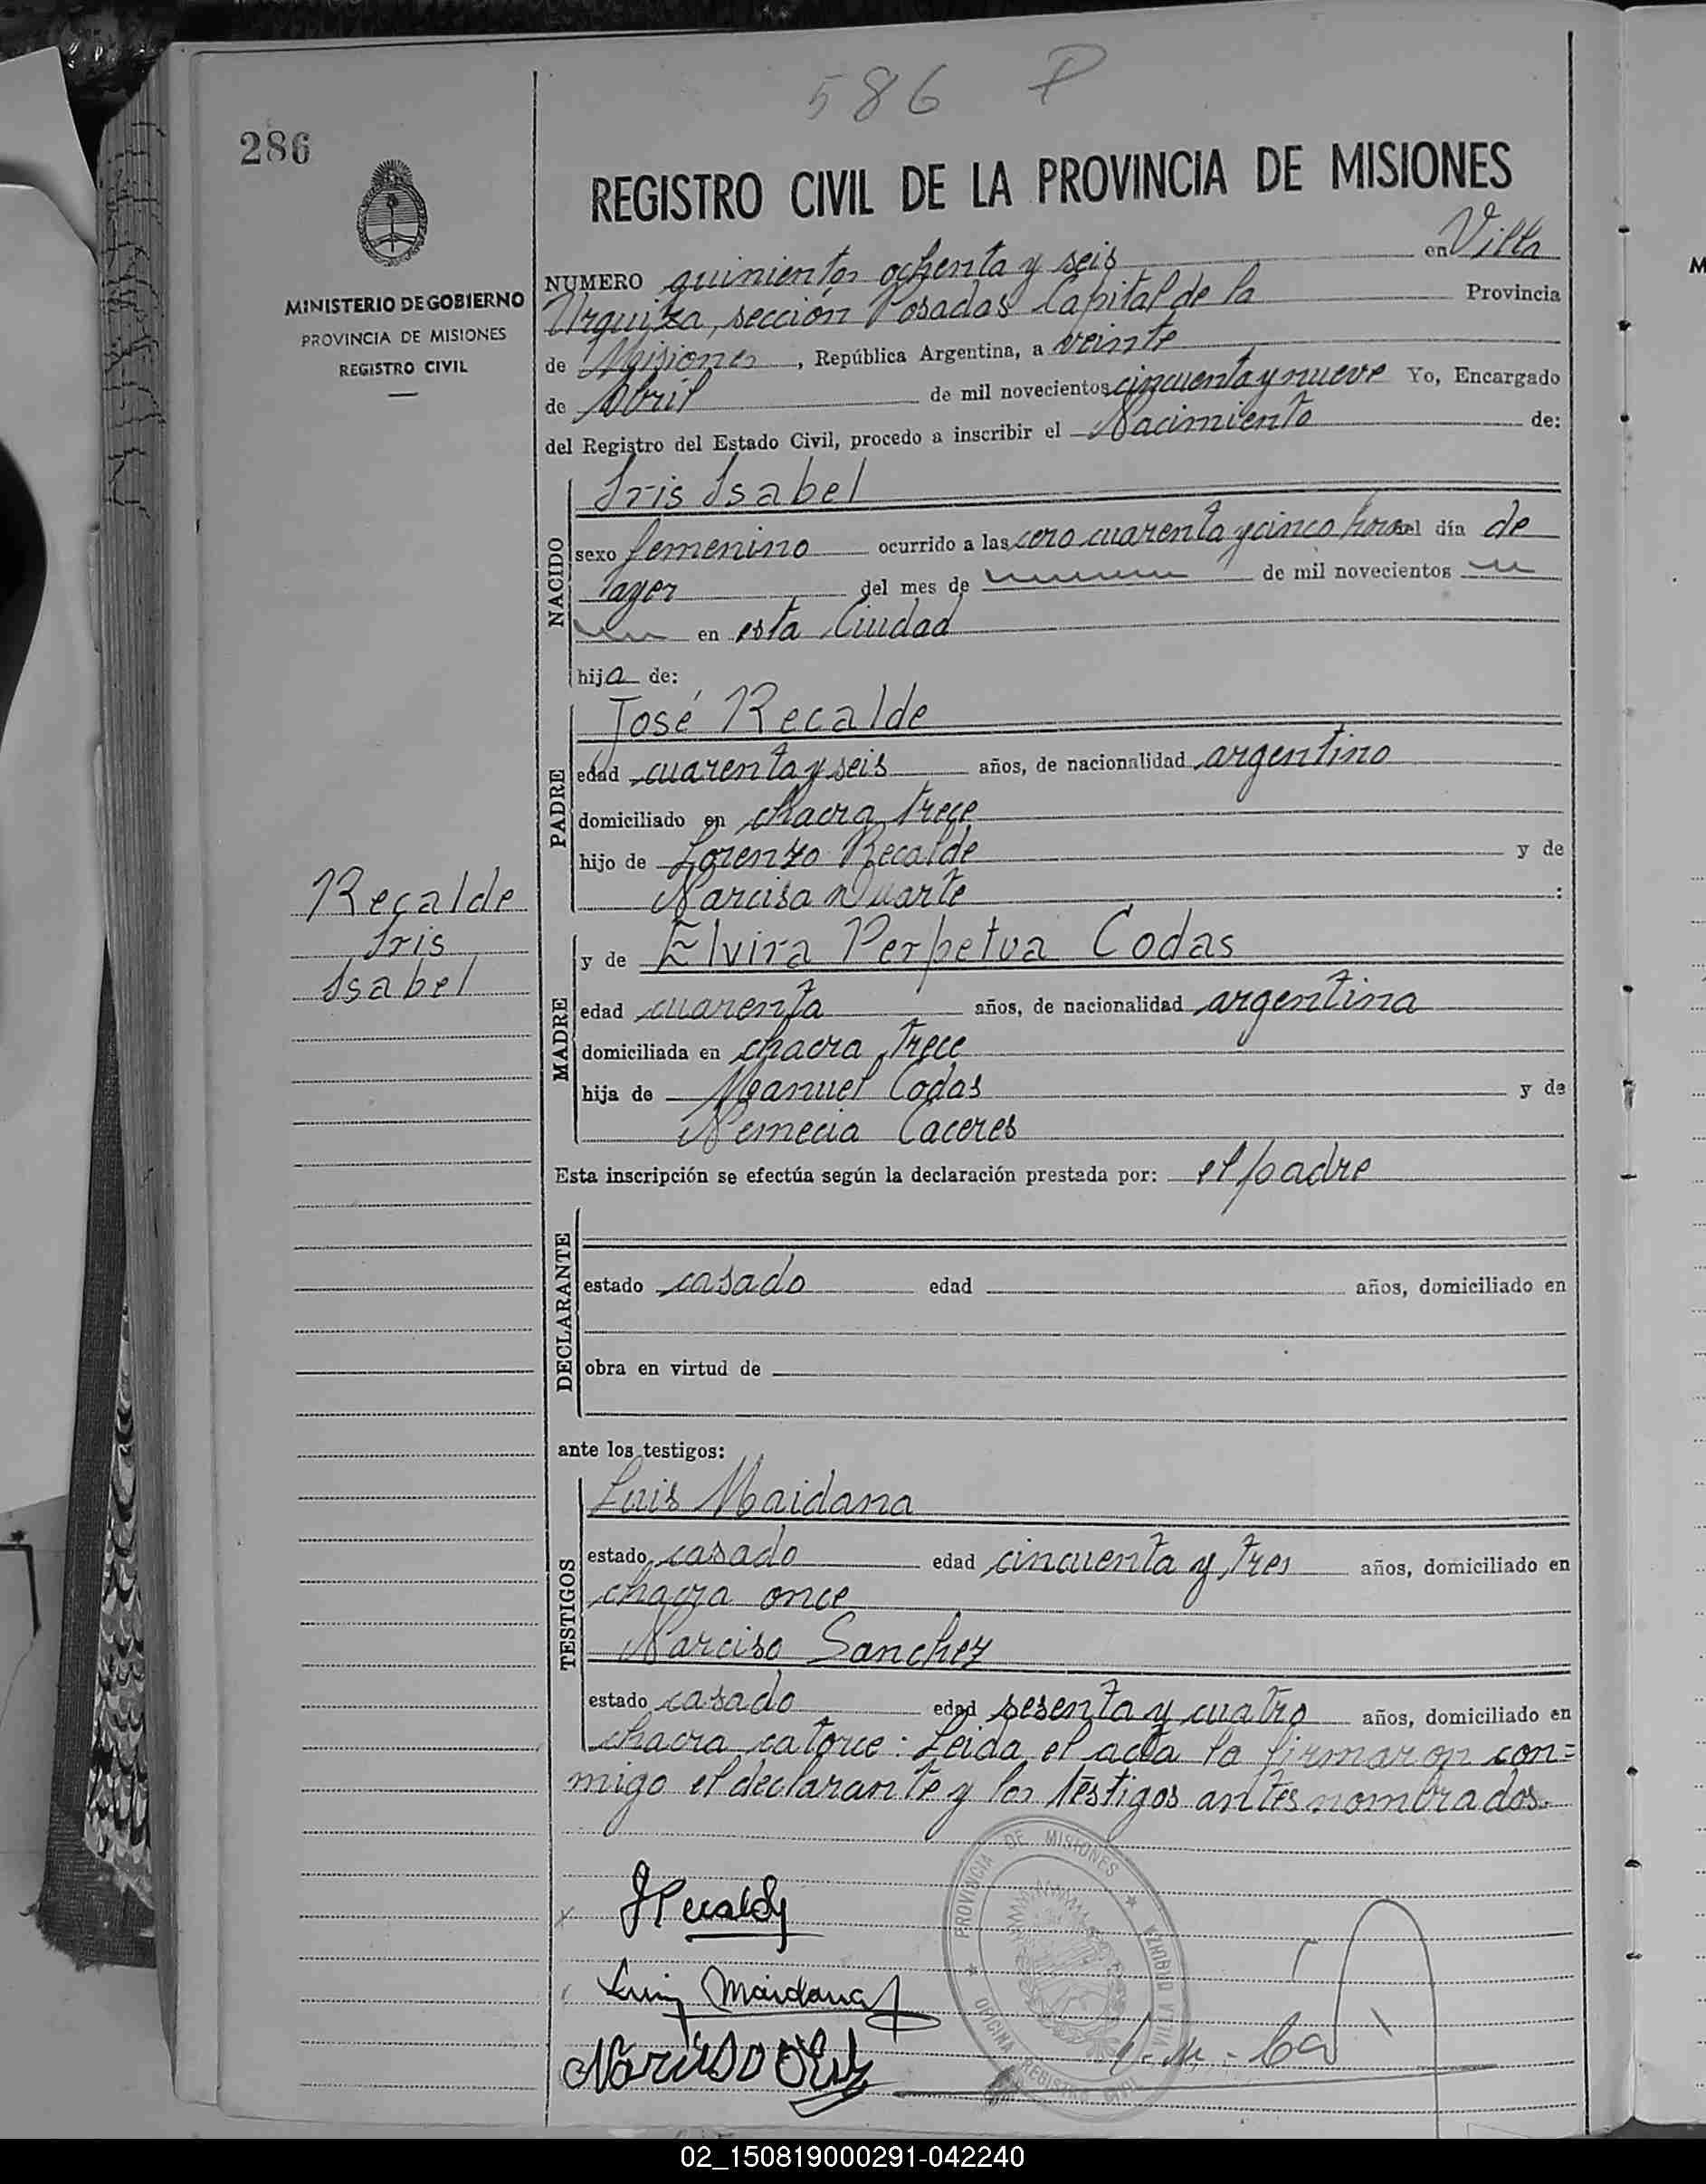 586 P
286
REGISTRO CIVIL DE LA PROVINCIA DE MISIONES
MINISTERIO DE GOBIERNO
PROVINCIA DE MISIONES
REGISTRO CIVIL
NUMERO quinientos ochenta y seis en Villa
Urquiza, sección Posadas Capital de la Provincia
de Misiones, República Argentina, a veinte
de Abril de mil novecientos cincuenta y nueve Yo, Encargado
del Registro del Estado Civil, procedo a inscribir el Nacimiento de:
NACIDO
Iris Isabel
sexo femenino ocurrido a las cero cuarenta y cinco horas el día de
ayer del mes de de mil novecientos
en esta Ciudad
hija de:
PADRE
José Recalde
edad cuarenta y seis años, de nacionalidad argentino
domiciliado en chacra trece
hijo de Lorenzo Recalde y de
Narcisa Duarte :
Recalde
Iris
Isabel
MADRE
y de Elvira Perpetua Codas
edad cuarenta años, de nacionalidad argentina
domiciliada en chacra trece
hija de Manuel Codas y de
Nemecia Caceres
Esta inscripción se efectúa según la declaración prestada por: el padre
DECLARANTE
estado casado edad años, domiciliado en
obra en virtud de
ante los testigos:
TESTIGOS
Luis Maidana
estado casado edad cincuenta y tres años, domiciliado en
chacra once
Narciso Sanchez
estado casado edad sesenta y cuatro años, domiciliado en
chacra catorce: Leida el acta la firmaron con=
migo el declarante y los testigos antes nombrados.
PROVINCIA DE MISIONES
OFICINA REGISTRO CIVIL
VILLA URQUIZA
JRecalde
Luis Maidana
Narciso
02_150819000291-042240